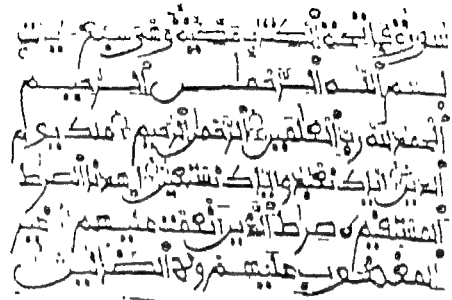 سورة فاتحة الكتب مكية وهي سبع ايت
بسم الله الرحمن الرحيم
الحمد لله رب العلمين الرحمن الرحيم ملك يوم
الدين اياك نعبد واياك نستعين اهدنا الصرط
المستقيم صراط الذين انعمت عليهم غير
المغضوب عليهم ولا الضالين